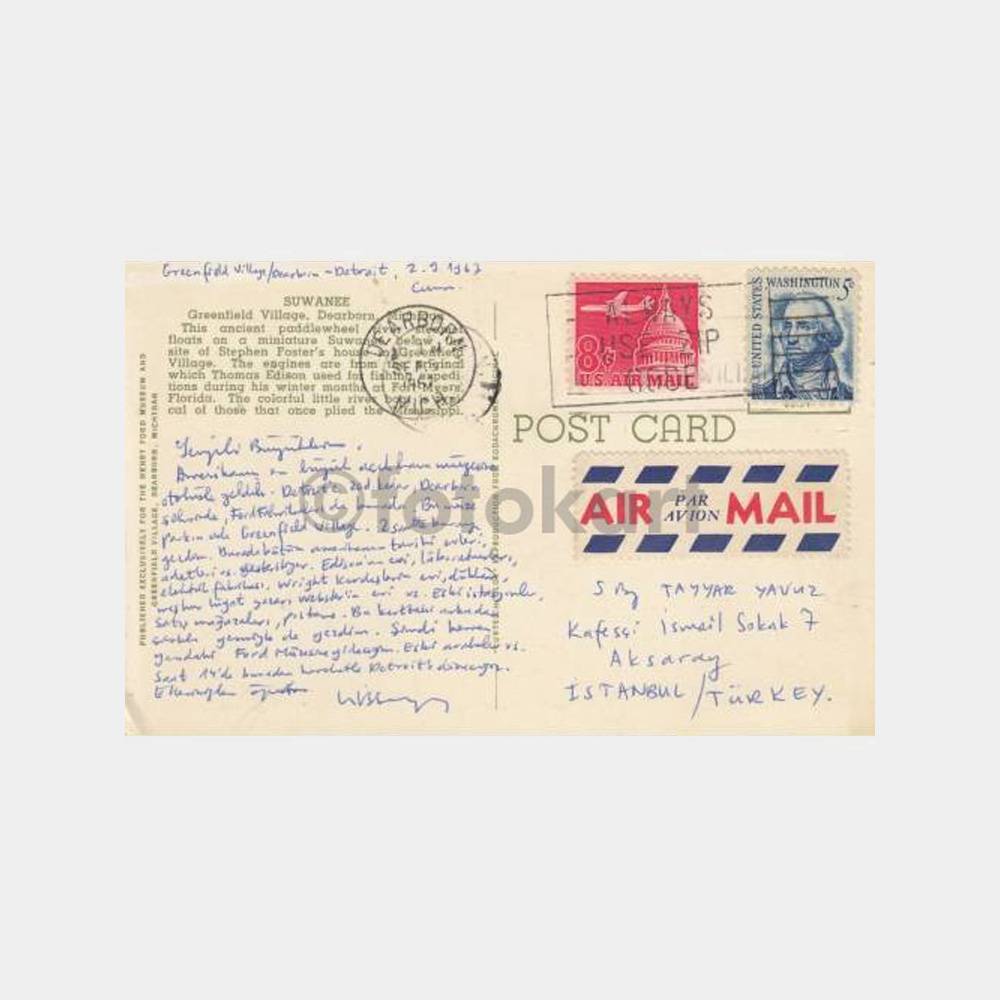 Greenfield Village/Dearborn - Detroit, 2.9.1967
Cuma.
SUWANEE
Greenfield Village, Dearborn, Michigan
This ancient paddlewheel river steamer
floats on a miniature Suwanee below the
site of Stephen Foster's house in Greenfield
Village. The engines are from the original
which Thomas Edison used for fishing expedi-
tions during his winter months at Fort Myers,
Florida. The colorful little river boat is typi-
cal of those that once plied the Mississippi.
PUBLISHED EXCLUSIVELY FOR THE HENRY FORD MUSEUM AND
GREENFIELD VILLAGE, DEARBORN, MICHIGAN
REPRODUCTION FROM KODACHROME
DEARBORN
MICH
ALWAYS
USE ZIP
CODE
8¢
U.S. AIR MAIL
UNITED STATES
WASHINGTON 5¢
POST CARD
AIR PAR AVION MAIL
Sevgili Büyüklerim,
Amerikanın en büyük açıkhava müzesine
otobüsle geldik. Detroit'e Dearborn
şehrinde, Ford Fabrikaları Bu müze
Greenfield Village. 2 saatte
gezdim. Burada bütün amerikanın tarihi evleri,
Edison'un evi, laboratuarları,
elektrik fabrikası, Wright Kardeşlerin evi, dükkanı,
meşhur lûgat yazarı Webster'in evi vs. Eski istasyonlar,
satış mağazaları, postane. Bu karttaki arkadan
çarklı gemiyle de gezdim. Şimdi hemen
yandaki Ford Müzesine gideceğim. Eski arabalar vs.
Saat 14'de buradan hareketle Detroit'e döneceğiz.
Ellerinizden öperim
S Bay TAYYAR YAVUZ
Kafesçi İsmail Sokak 7
Aksaray
İSTANBUL/TÜRKEY.
©fotokart